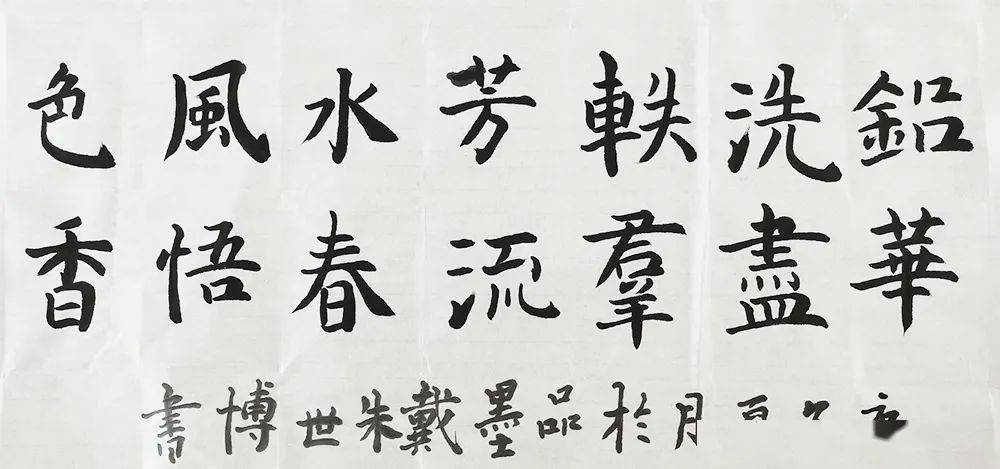 鉛華
洗盡
軼羣
芳流
水春
風悟
色香
月於品墨戴朱世博書